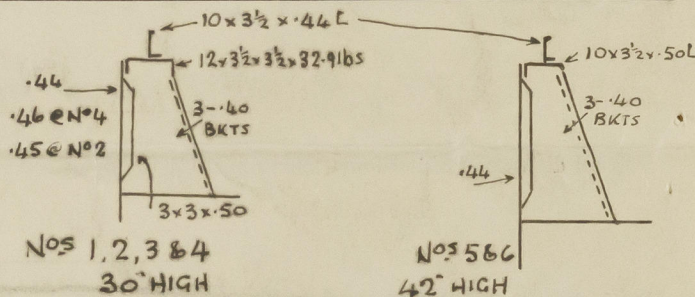 10 x 3½ x .44 [
12 x 3½ x 3½ x 32.9 lbs
.44
.46 @ Nº 4
.45 @ Nº 2
3-.40
BKTS
3 x 3 x .50
Nos 1, 2, 3 & 4
30" HIGH
10 x 3½ x .50 L
3-.40
BKTS
.44
Nos 5 & 6
42" HIGH